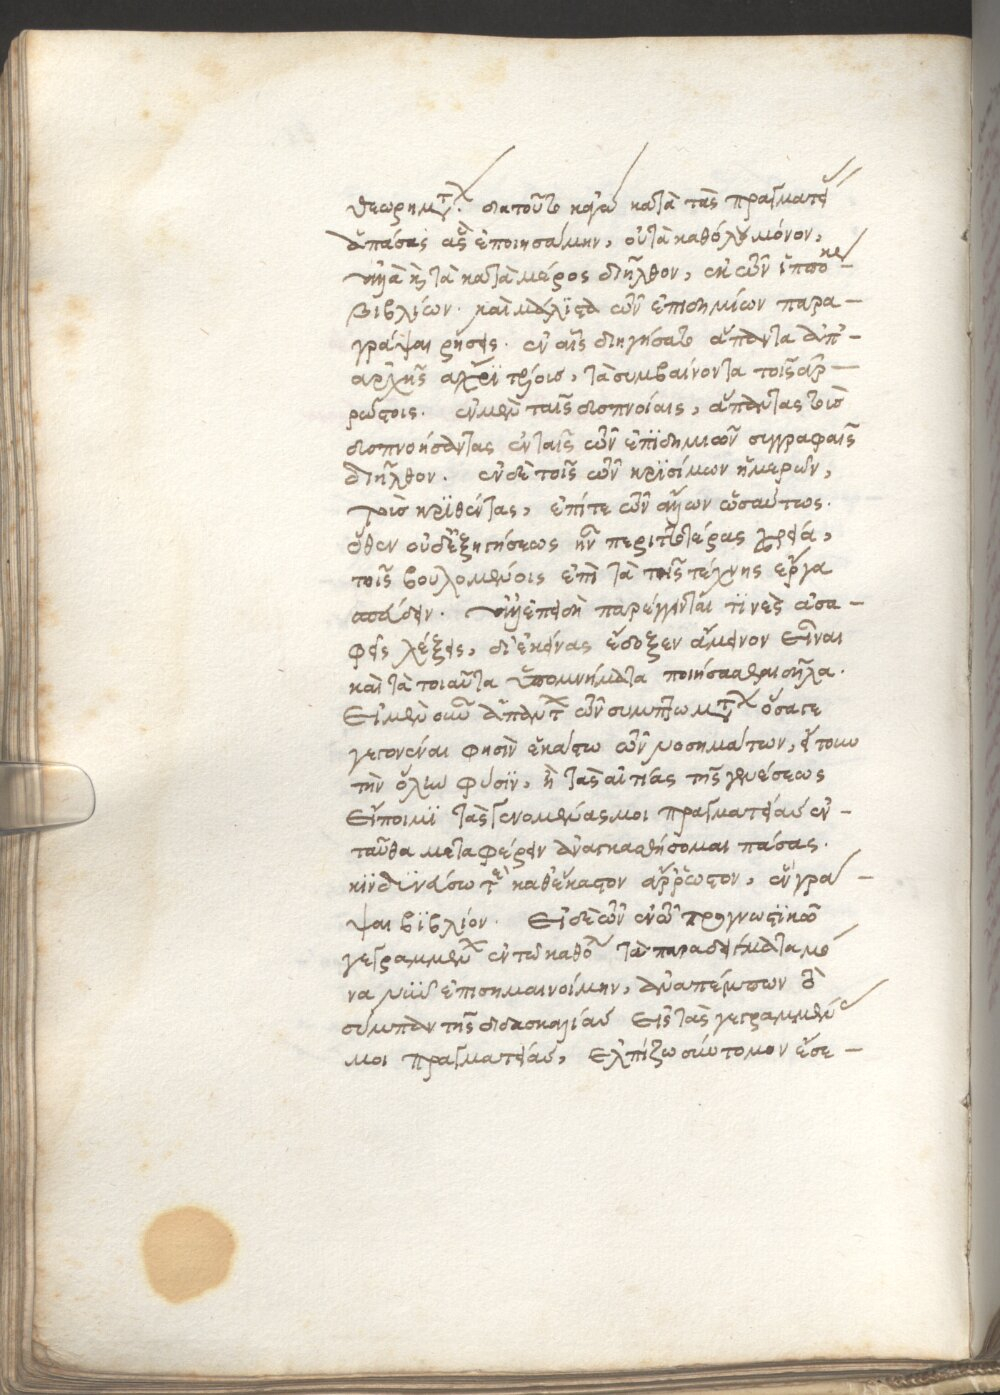 θεωρημάτων. διατοῦτο κἀγὼ κατὰ τὰς πραγματείας
ἁπάσας ἃς ἐποιησάμην, οὐ τὰ καθόλου μόνον,
ἀλλὰ καὶ τὰ κατὰ μέρος διῆλθον, ἐκ τῶν ἱπποκρ
βιβλίων. καὶ μάλιστα τῶν ἐπιδημίων παρα-
γράψας ῥήσεις. ἐν αἷς διηγήσατο ἅπαντα ἀπ'-
ἀρχῆς ἄχρι τέλους, τὰ συμβαίνοντα τοῖς ἀρ-
ρώστοις. ἐν μὲν ταῖς δυσπνοίαις, ἅπαντας τοὺς
δυσπνοήσαντας ἐν ταῖς τῶν ἐπϊδημιῶν συγγραφαῖς
διῆλθον. ἐν δὲ τοῖς τῶν κρϊσίμων ἡμερῶν,
τοὺς κρϊθέντας, ἐπί τε τῶν ἄλλων ὡσαύτως.
ὅθεν οὐδ' ἐξηγήσεως ἦν περιττοτέρας χρεία,
τοῖς βουλομένοις ἐπὶ τὰ τῆς τέχνης ἔργα
σπεύδειν. ἀλλ' ἐπειδὴ παρέγκεινται τϊνὲς ἀσα-
φεῖς λέξεις, δι' ἐκείνας ἔδοξεν ἄμεινον εἶναι
καὶ τὰ τοιαῦτα ὑπομνήματα ποιήσασθαι δῆλα.
Εἰ μὲν οὖν ἁπάντων τῶν συμπτωμάτων ὅσα τε
γεγονέναι φησὶν ἑκάστω τῶν νοσημάτων, ἤτοι
τὴν ὅλην φύσϊν, ἢ τὰς αἰτίας τῆς γενέσεως
εἴποιμϊ τὰς γενομένας μοι πραγματείας ἐν-
ταῦθα μεταφέρειν ἀναγκασθήσομαι πάσας.
κϊνδϋνεύσω τε καθ' ἕκαστον ἄρρωστον, ἓν γρά-
ψαι βϊβλίον. Εἰ δὲ τῶν ἐν τῶ προγνωστϊκῶ
γεγραμμένων ἐν τῶ καθόλου τὰ παραδείγματα μό
να νῦν ἐπισημαινοίμην, ἀναπέμπων τὸ
σύμπαν τῆς διδασκαλίας εἰς τὰς γεγραμμένας
μοι πραγματείας, ἐλπίζω σύντομον ἔσε-